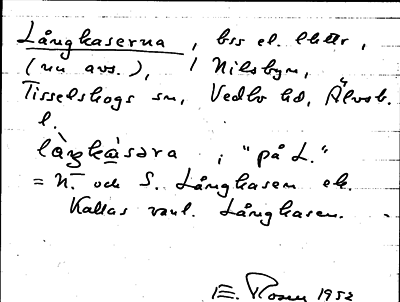 Långkaserna, bss el. lhttr,
(nu avs.), i Nilsbyn,
Tisselskogs sn, Vedbo hd, Älvsb.
l.
làŋkàsəra ; "på L."
= N. och S. Långkasen ek.
Kallas vanl. Långkasen.
E. Rosen 1952